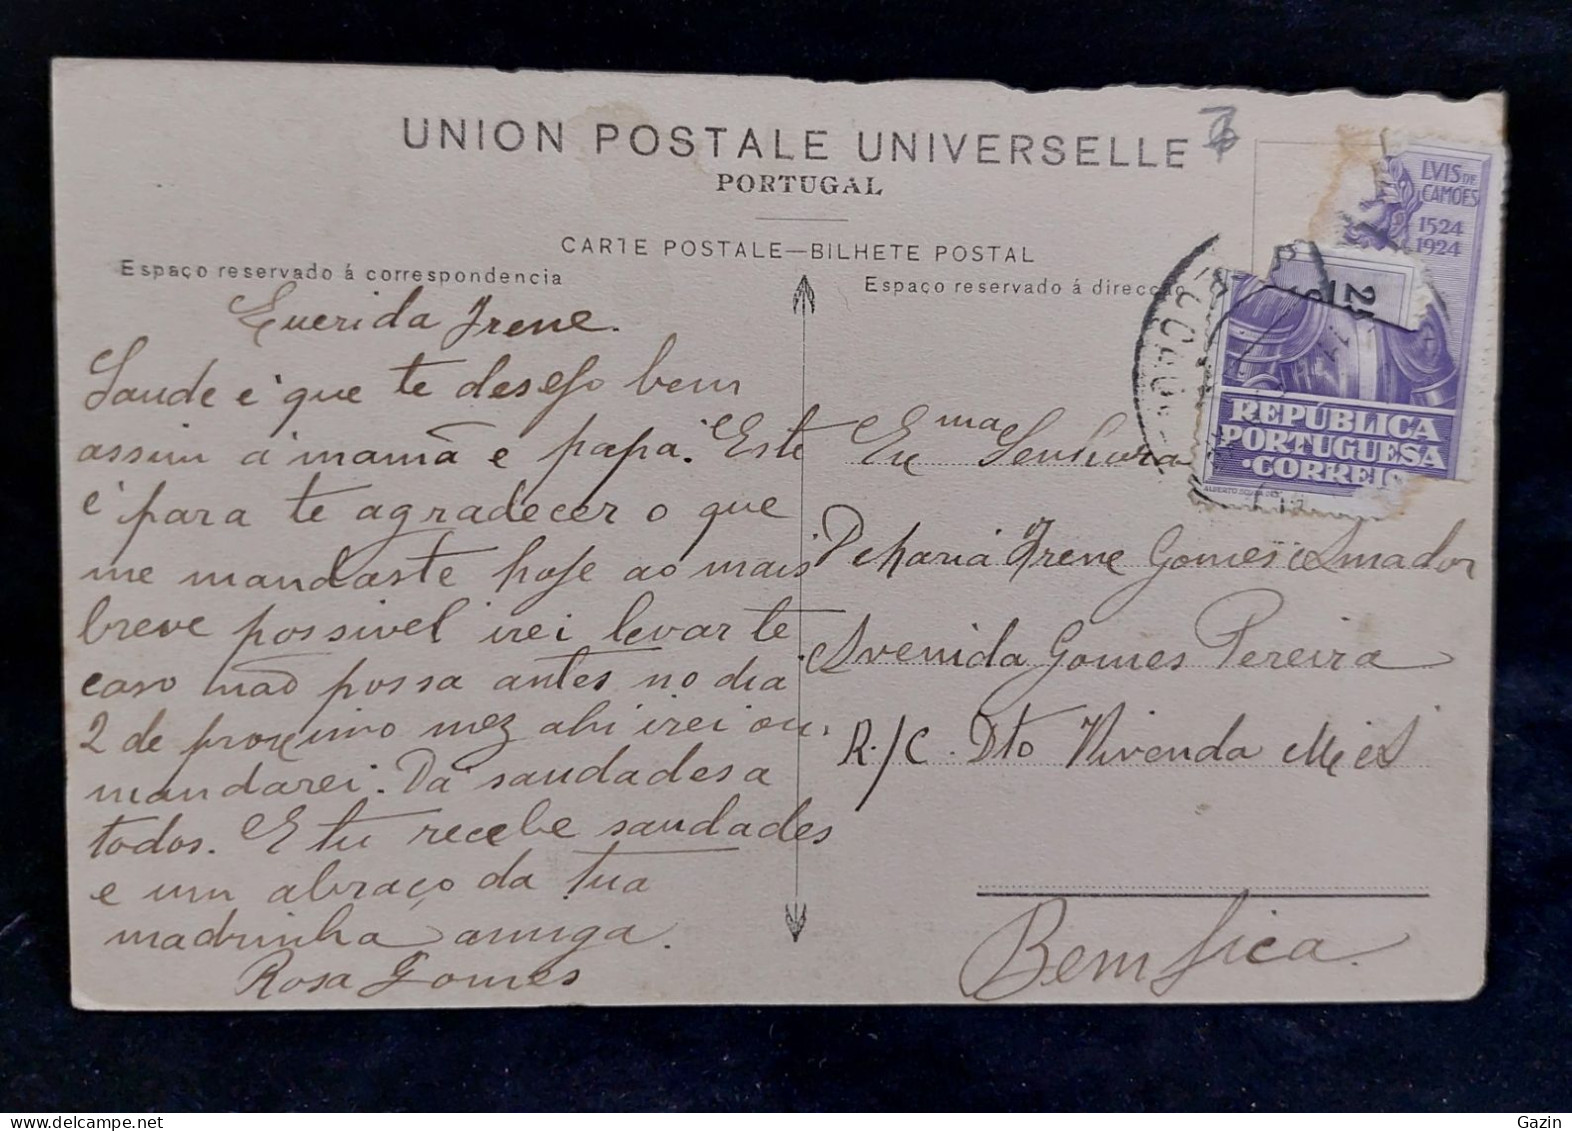 UNION POSTALE UNIVERSELLE
PORTUGAL
CARTE POSTALE—BILHETE POSTAL
Espaço reservado á correspondencia
Querida Irene.
Saude é que te desejo bem
assim á mamã e papá. Este
é para te agradecer o que
me mandaste hoje ao mais
breve possivel irei levar te
caso não possa antes no dia
2 de proximo mez ahi irei ou
mandarei. Dá saudades a
todos. E tu recebe saudades
e um abraço da tua
madrinha amiga.
Rosa Gomes
Espaço reservado á direcç
Exma Senhora
D Maria Irene Gomes Amador
Avenida Gomes Pereira
R./C. Dto Vivenda
Bemfica.
LVIS DE
CAMÕES
1524
1924
REPÚBLICA
PORTUGUESA
CORREIO
Gazin